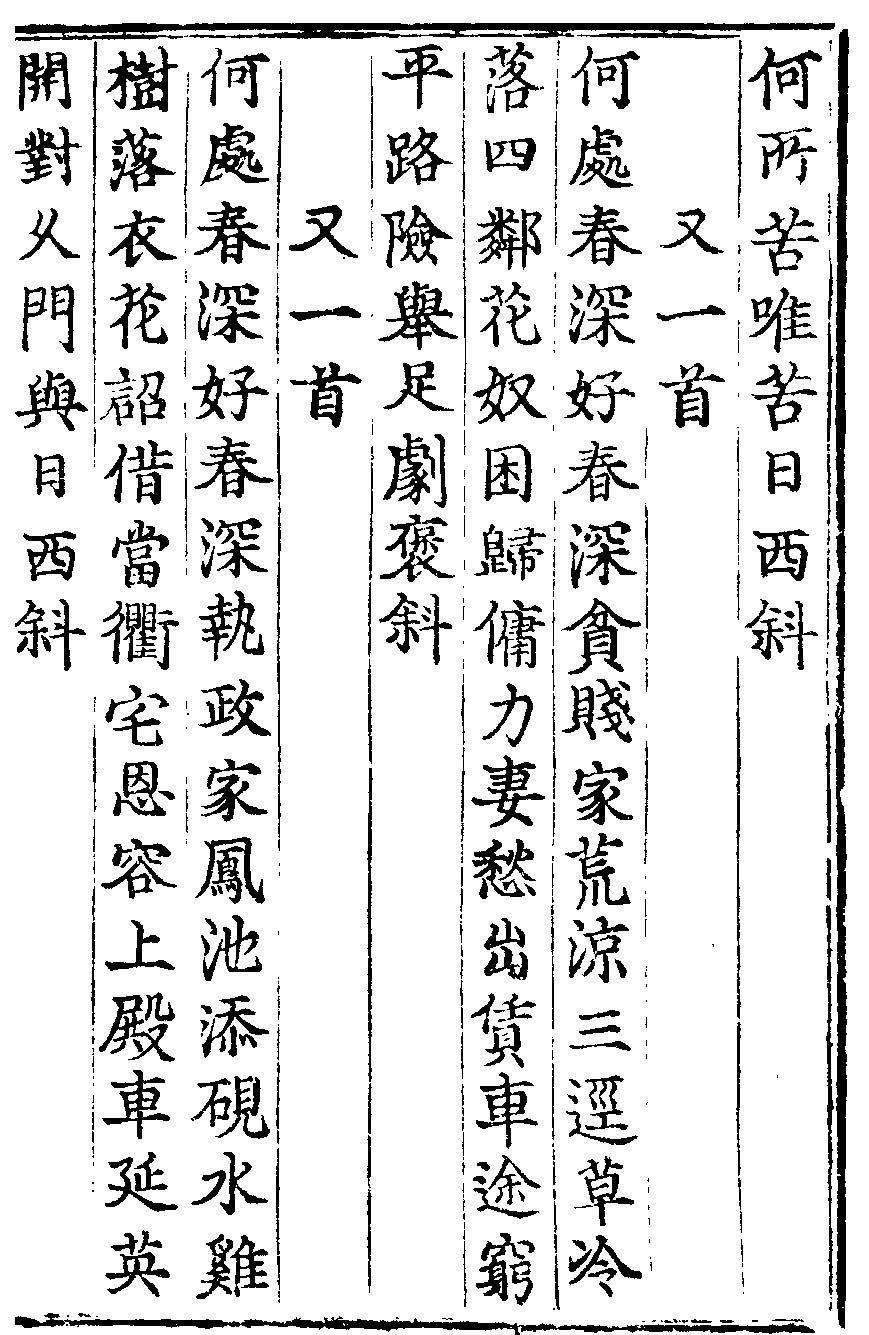 何所苦唯苦日西斜
又一首
何處春深好春深貧賤家荒涼三逕草冷
落四鄰花奴困歸傭力妻愁出賃車途窮
平路險舉足劇褒斜
又一首
何處春深好春深執政家鳳池添硯水雞
樹落衣花詔借當衢宅恩容上殿車延英
開對久門與日西斜